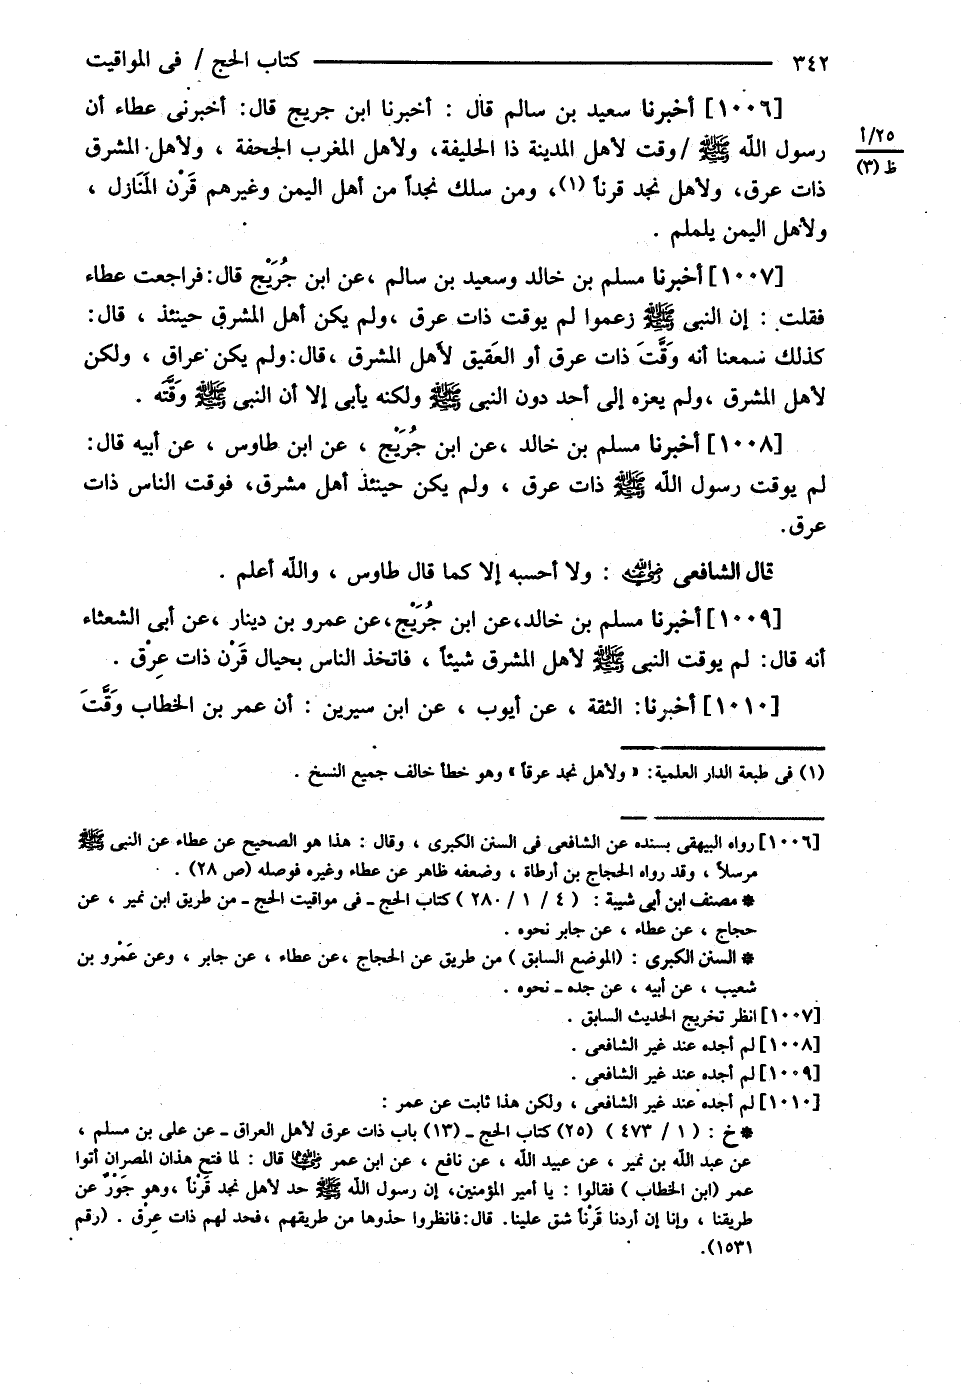 ٣٤٢ ـــــــــــــــــــــــــــــــــ كتاب الحج / فى المواقيت
[١٠٠٦] أخبرنا سعيد بن سالم قال : أخبرنا ابن جريج قال: أخبرنى عطاء أن
رسول الله ﷺ / وقت لأهل المدينة ذا الحليفة، ولأهل المغرب الجحفة ، ولأهل المشرق
٢٥/أ
ظ (٣)
ذات عرق، ولأهل نجد قرناً (١)، ومن سلك نجداً من أهل اليمن وغيرهم قَرْن المَنَازل ،
ولأهل اليمن يلملم .
[١٠٠٧] أخبرنا مسلم بن خالد وسعيد بن سالم ،عن ابن جُرَيْج قال:فراجعت عطاء
فقلت : إن النبى ﷺ زعموا لم يوقت ذات عرق ،ولم يكن أهل المشرق حينئذ ، قال:
كذلك سمعنا أنه وَقَّتَ ذات عرق أو العَقيق لأهل المشرق ،قال:ولم يكن عراق ، ولكن
لأهل المشرق ،ولم يعزه إلى أحد دون النبى ﷺ ولكنه يأبى إلا أن النبى ﷺ وَقَّتَه .
[١٠٠٨] أخبرنا مسلم بن خالد ،عن ابن جُرَيْج ، عن ابن طاوس ، عن أبيه قال:
لم يوقت رسول الله ﷺ ذات عرق ، ولم يكن حينئذ أهل مشرق، فوقت الناس ذات
عرق.
قال الشافعى رضي الله عنه : ولا أحسبه إلا كما قال طاوس ، والله أعلم .
[١٠٠٩] أخبرنا مسلم بن خالد،عن ابن جُرَيْج،عن عمرو بن دينار ،عن أبى الشعثاء
أنه قال: لم يوقت النبى ﷺ لأهل المشرق شيئاً ، فاتخذ الناس بحيال قَرْن ذات عِرْق .
[١٠١٠] أخبرنا: الثقة ، عن أيوب ، عن ابن سيرين : أن عمر بن الخطاب وَقَّتَ
(١) فى طبعة الدار العلمية: « ولأهل نجد عرقاً » وهو خطأ خالف جميع النسخ .
[١٠٠٦] رواه البيهقى بسنده عن الشافعى فى السنن الكبرى ، وقال : هذا هو الصحيح عن عطاء عن النبى ﷺ
مرسلاً ، وقد رواه الحجاج بن أرطاة ، وضعفه ظاهر عن عطاء وغيره فوصله (ص ٢٨) .
* مصنف ابن أبى شيبة : ( ٤ / ١ / ٢٨٠ ) كتاب الحج ـ فى مواقيت الحج ـ من طريق ابن نمير ، عن
حجاج ، عن عطاء ، عن جابر نحوه .
* السنن الكبرى : (الموضع السابق ) من طريق عن الحجاج ،عن عطاء ، عن جابر ، وعن عَمْرو بن
شعيب ، عن أبيه ، عن جده ـ نحوه .
[١٠٠٧] انظر تخريج الحديث السابق .
[١٠٠٨] لم أجده عند غير الشافعى .
[١٠٠٩] لم أجده عند غير الشافعى .
[١٠١٠] لم أجده عند غير الشافعى ، ولكن هذا ثابت عن عمر :
* خ : ( ١ / ٤٧٣ ) (٢٥) كتاب الحج ـ (١٣) باب ذات عرق لأهل العراق ـ عن على بن مسلم ،
عن عبد الله بن نمير ، عن عبيد الله ، عن نافع ، عن ابن عمر رضي الله عنهما قال : لما فتح هذان المصران أتوا
عمر (ابن الخطاب ) فقالوا : يا أمير المؤمنين، إن رسول الله ﷺ حد لأهل نجد قَرْناً ،وهو جَوْرٌ عن
طريقنا ، وإنا إن أردنا قَرْناً شق علينا. قال:فانظروا حذوها من طريقهم ،فحد لهم ذات عِرْق . (رقم
١٥٣١).